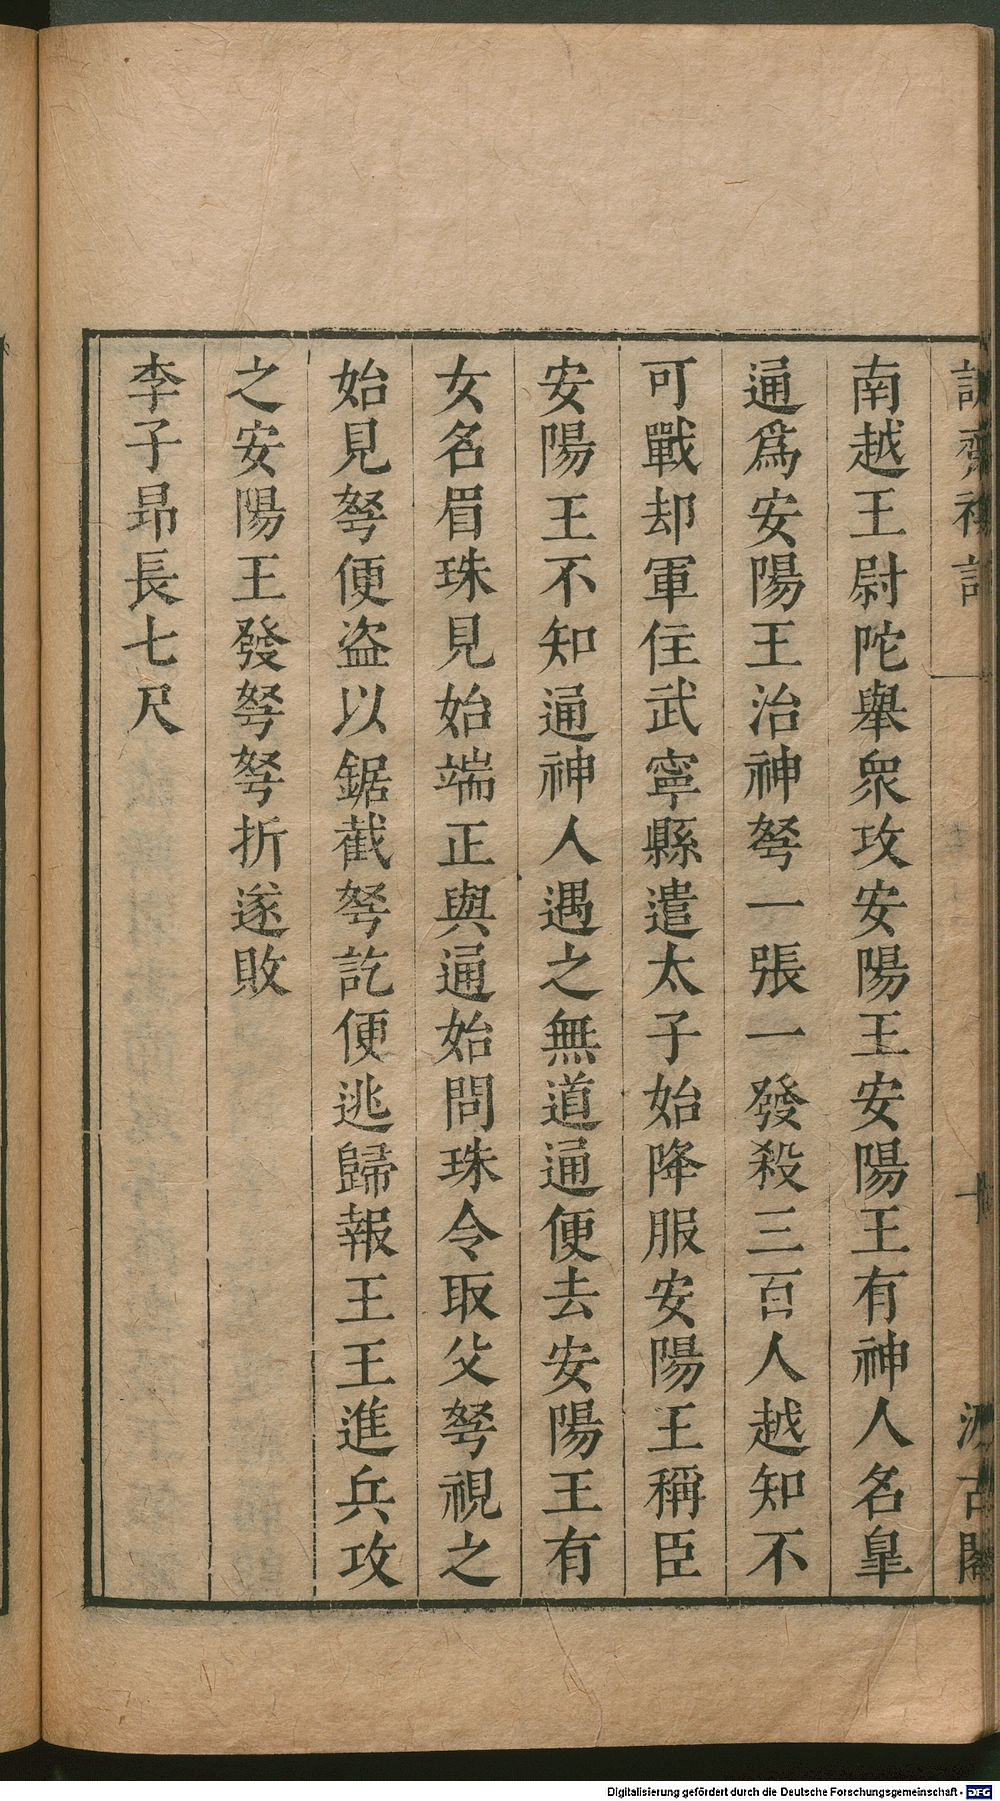 誠齋襍記 十 汲古閣
南越王尉陀舉衆攻安陽王安陽王有神人名臯
通爲安陽王治神弩一張一發殺三百人越知不
可戰却軍住武寧縣遣太子始降服安陽王稱臣
安陽王不知通神人遇之無道通便去安陽王有
女名眉珠見始端正與通始問珠令取父弩視之
始見弩便盗以鋸截弩訖便逃歸報王王進兵攻
之安陽王發弩弩折遂敗
李子昂長七尺
Digitalisierung gefördert durch die Deutsche Forschungsgemeinschaft - DFG